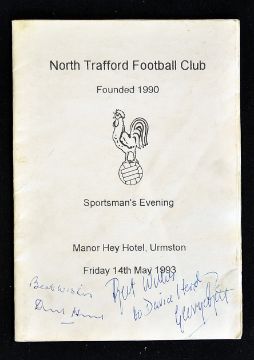 North Trafford Football Club
Founded 1990
Sportsman's Evening
Manor Hey Hotel, Urmston
Friday 14th May 1993
Best Wishes
Best Wishes
to David Herd